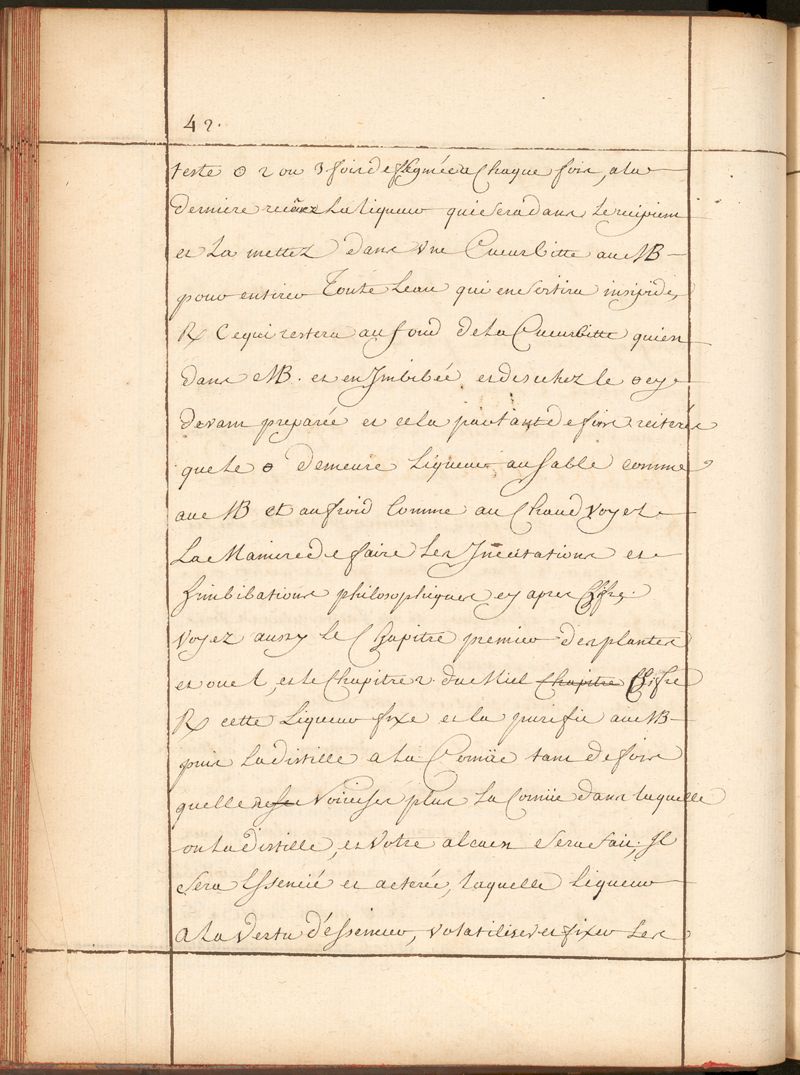 42.
teste ⊖ 2 ou 3 fois deflegmée a Chaque fois, ala
derniere la liqueur qui sera dans le recipient
et la mettez dans une Cucurbitte au MB
pour entirer Toute Leau qui en sortira insipide,
℞ Cequi restera au fond de la Cucurbitte qui en
dans MB. et en Jmbibée et desechez le ⊖ cy
devant preparée et cela pautant de fois reiterée
que le ⊖ demeure liqueur au sable comme
au MB et au froid Comme au Chaud Voyez
La Maniere de faire les Jncerations et
Jmbibations philosophiques cy apres Chifre.
Voyez aussy le Chapitre premier des plantes
et ou el, et le Chapitre 2. du Miel Chapitre Chifre
℞ cette Liqueur fixe et la purifié au MB
puis La distille a la Cornüe tant de fois
quelle ne se Noircisse plus La Cornüe dans laquelle
on la distille, et Votre alcaest sera fait, Jl
sera Essencié et aeterée, laquelle Liqueur
a la Vertu d'éssencier, volatiliser et fixer Les